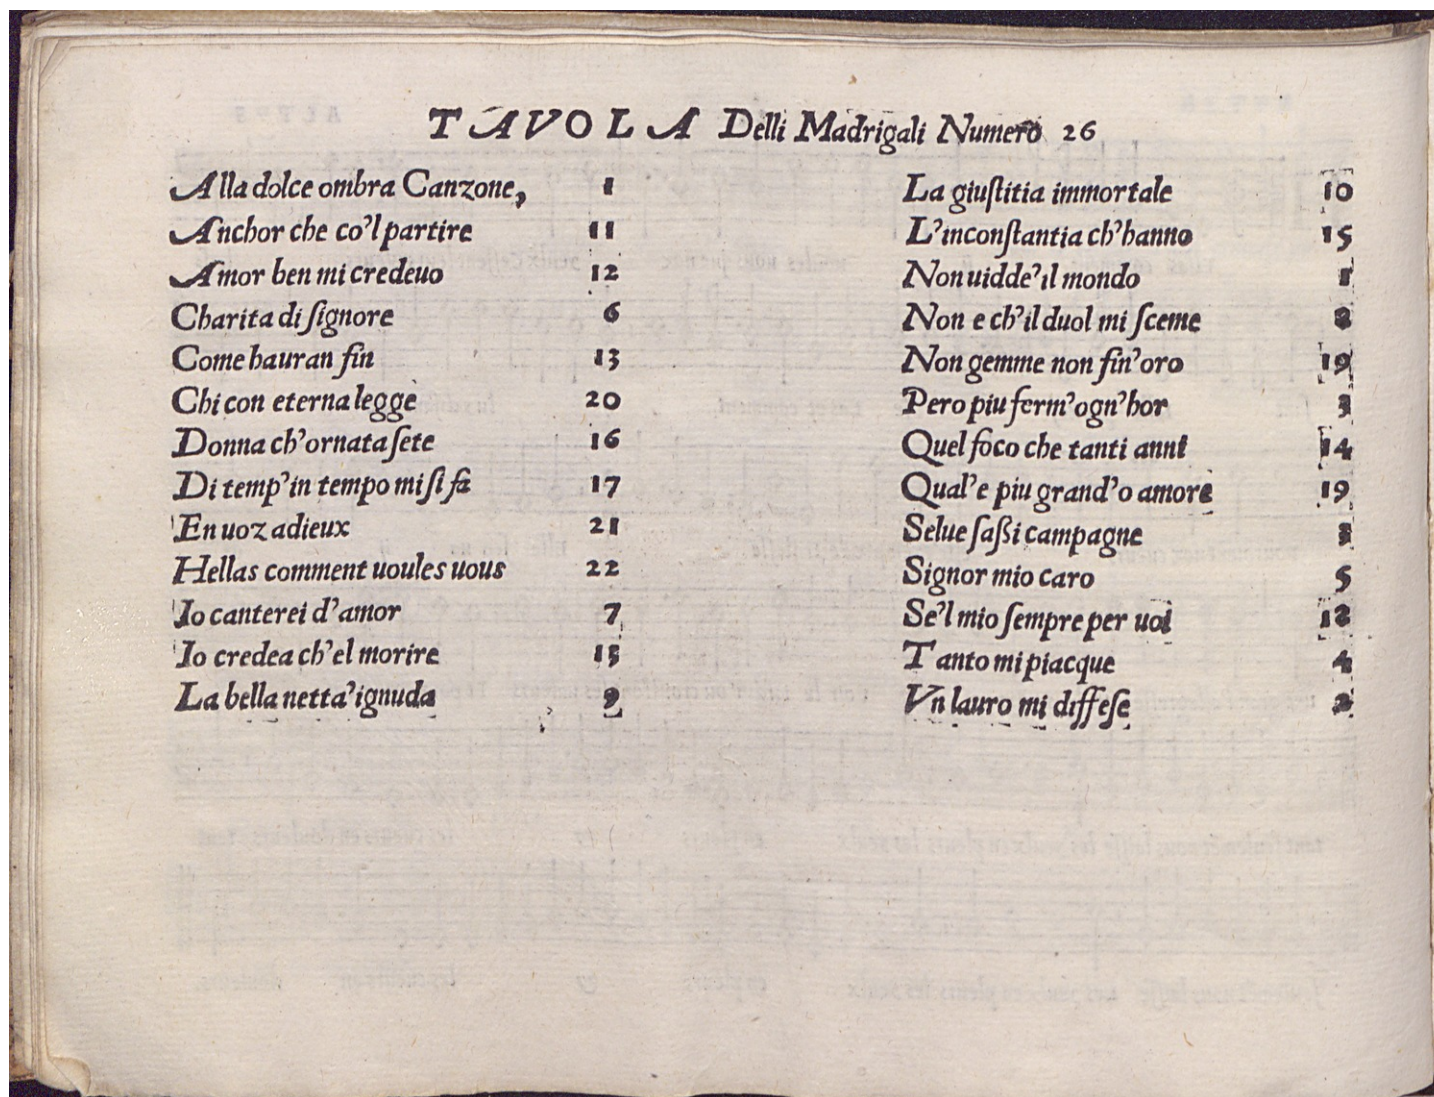 TAVOLA Delli Madrigali Numero 26
Alla dolce ombra Canzone, 1
Anchor che co'l partire 11
Amor ben mi credeuo 12
Charita di ſignore 6
Come hauran fin 13
Chi con eterna legge 20
Donna ch'ornata ſete 16
Di temp'in tempo mi ſi fa 17
En uoz adieux 21
Hellas comment uoules uous 22
Io canterei d'amor 7
Io credea ch'el morire 15
La bella netta'ignuda 9
La giuſtitia immortale 10
L'inconſtantia ch'hanno 15
Non uidde'il mondo 1
Non e ch'il duol mi ſceme 8
Non gemme non fin'oro 19
Pero piu ferm'ogn'hor 3
Quel foco che tanti anni 14
Qual'e piu grand'o amore 19
Selue ſaßi campagne 3
Signor mio caro 5
Se'l mio ſempre per uoi
Tanto mi piacque 4
Vn lauro mi diffeſe 2